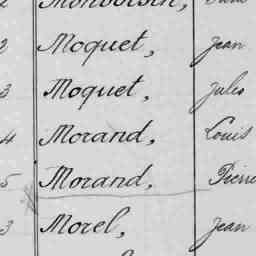 2 Moquet, Jean
3 Moquet, Jules
4 Morand, Louis
5 Morand, Pierre
3 Morel, Jean